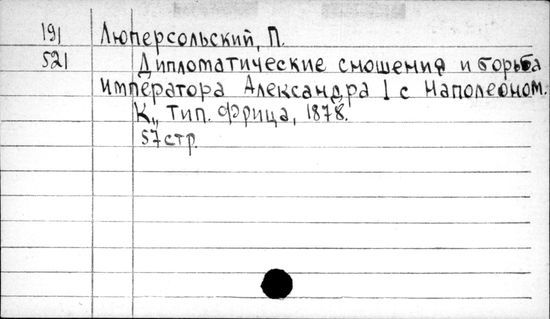 191 Люперсольский, П.
521 Дипломатические сношения и борьба
императора Александра I с Наполеоном.
К., тип. Фрица, 1878.
57 стр.